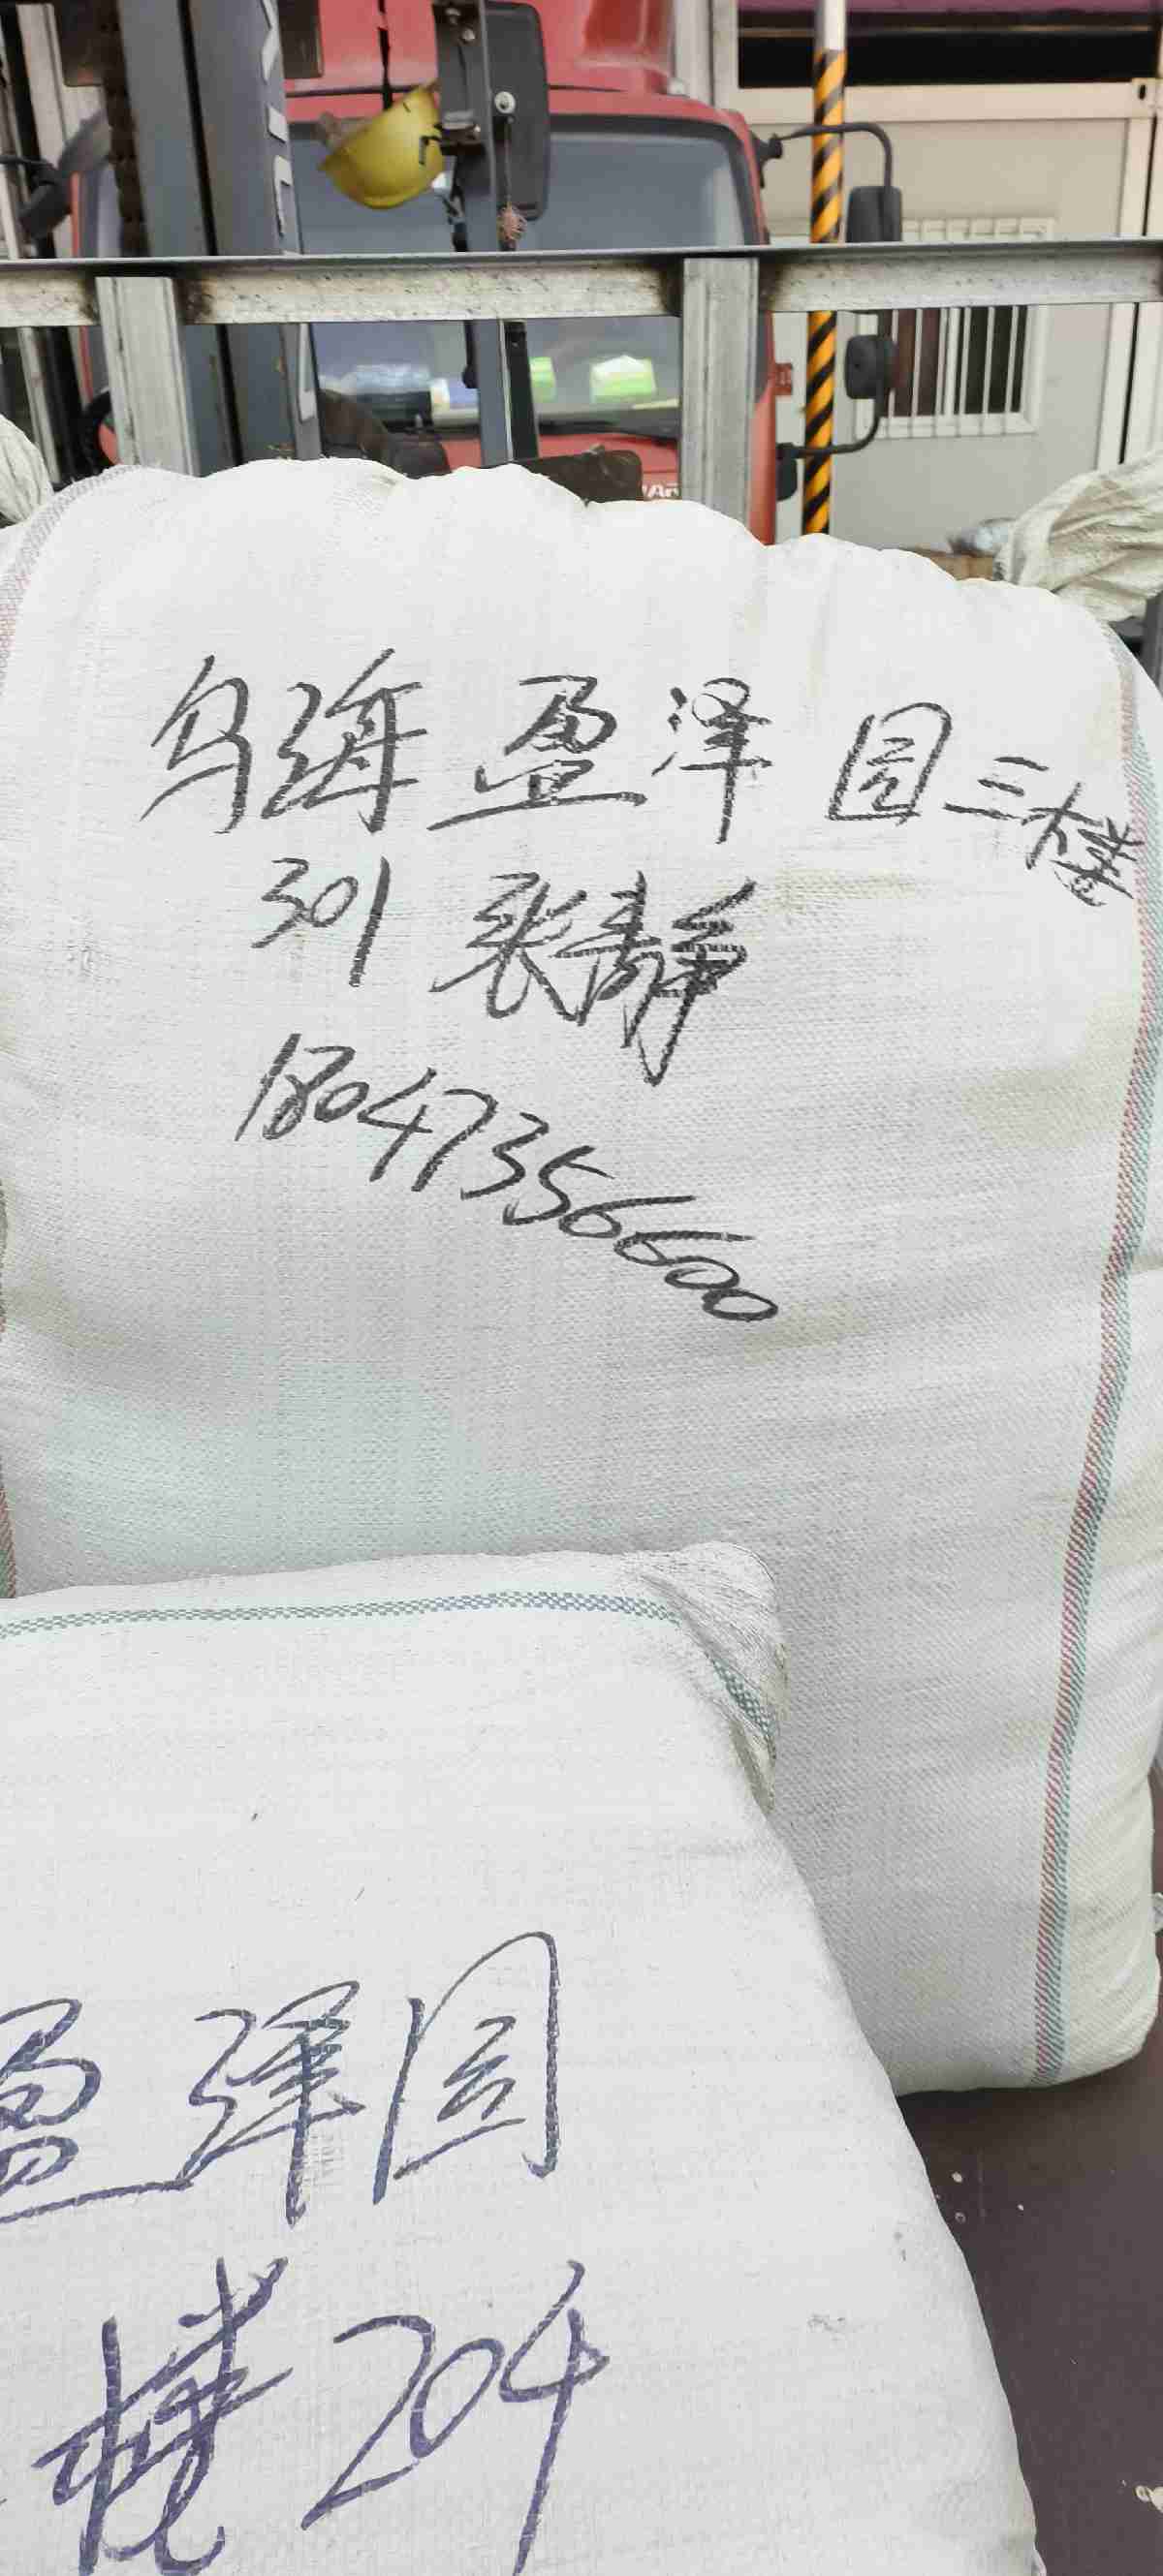 乌海盈泽园三楼
301 张静
18047356600
盈泽园
楼204